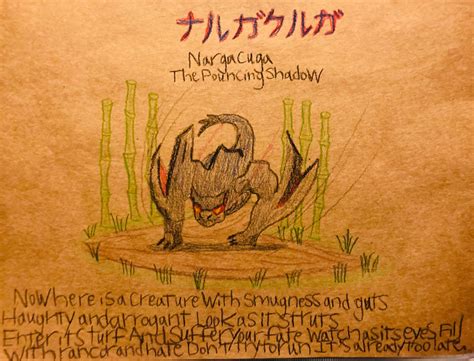 ナルガクルガ
NargaCuga
The Pouncing Shadow
Now here is a Creature With Smugness and guts
Haughty and arrogant Look as it struts
Enter it's turf And Suffer Your fate watch as its eyes Fill
With rancor and hate Don't try to run It's already too late